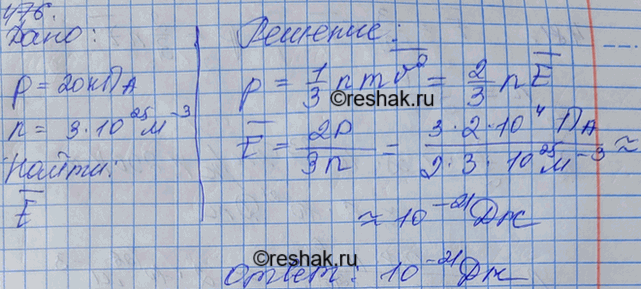 476.
Дано:
p = 20кПа
n = 3·10²⁵м⁻³
Найти:
E̅
Решение:
p = 1/3 nmv̅² = 2/3 nE̅
©reshak.ru
E̅ = 2p/3n = 3·2·10⁴ Па/2·3·10²⁵м⁻³ ≈
≈ 10⁻²¹Дж
©reshak.ru
Ответ: 10⁻²¹Дж